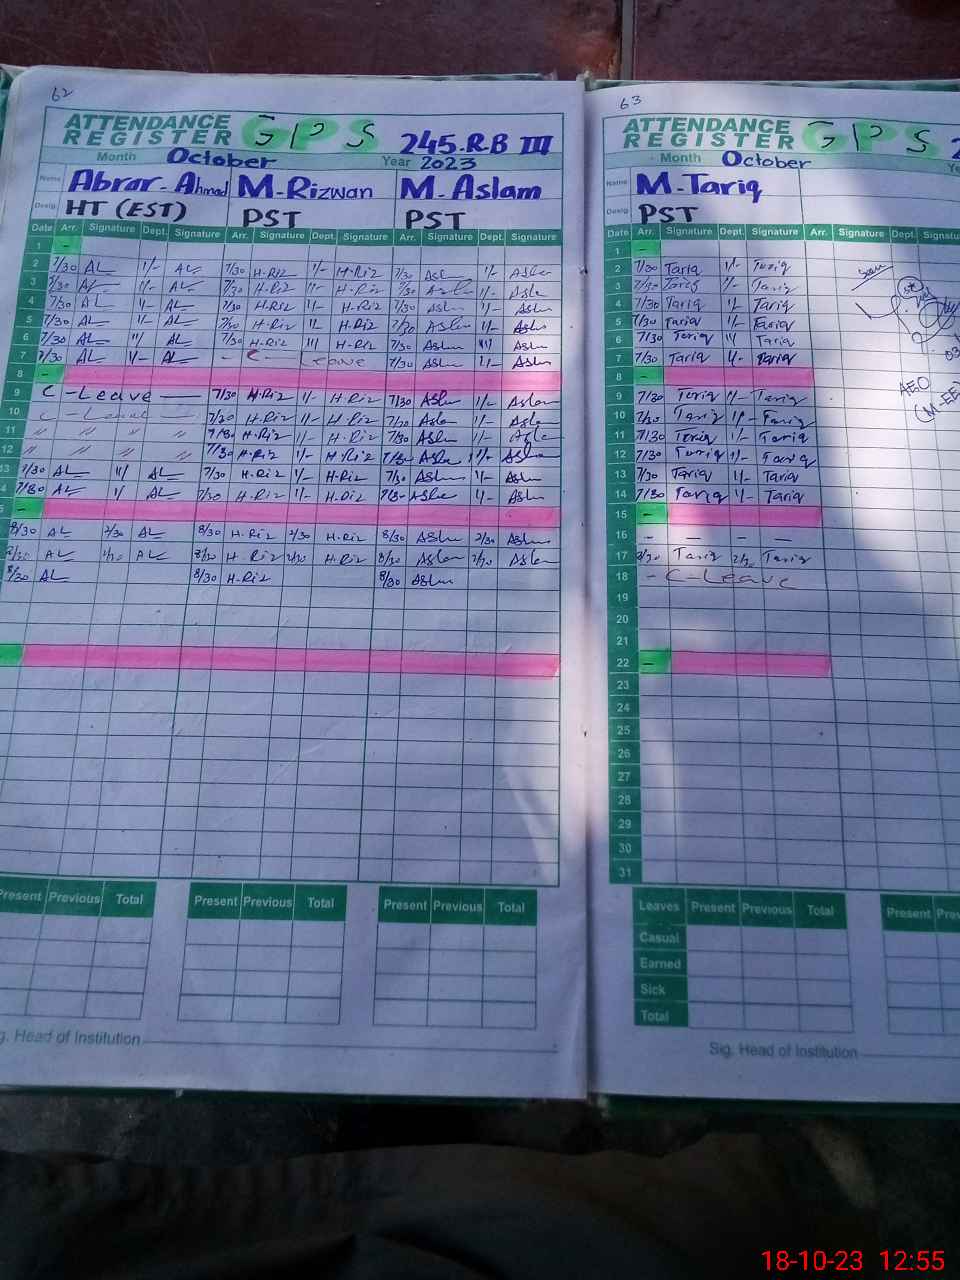 62
ATTENDANCE REGISTER GPS 245.RB III
Month October Year 2023
Name Abrar-Ahmad M-Rizwan M-Aslam
Desig. HT (EST) PST PST
Date Arr. Signature Dept. Signature Arr. Signature Dept. Signature Arr. Signature Dept. Signature
1 -
2 7/30 AL 1/- AL 7/30 H-Riz 1/- H-Riz 7/30 1/-
3 7/30 1/- AL 7/30 H-Riz 1/- H-Riz 7/30 1/-
4 7/30 AL 1/- AL 7/30 H-Riz 1/- H-Riz 7/30 1/-
5 7/30 AL 1/- AL 7/30 H-Riz 1/- H-Riz 7/30 Aslm 1/-
6 7/30 AL AL 7/30 H-Riz H-Riz 7/30 Aslm
7 7/30 AL 1/- AL - C- Leave 7/30 Aslm 1/- Aslm
8 -
9 C - Leave 7/30 H-Riz 1/- H-Riz 7/30 1/-
10 C - Leave 7/30 H-Riz 1/- H-Riz 7/30 1/-
11 〃 〃 〃 〃 7/30 H-Riz 1/- H-Riz 7/30 1/-
12 〃 〃 〃 〃 7/30 H-Riz 1/- H-Riz 7/30 1/-
13 7/30 AL AL 7/30 H-Riz 1/- H-Riz 7/30 1/-
14 7/30 AL AL 7/30 H-Riz 1/- H-Riz 1/-
-
8/30 AL 2/30 AL 8/30 H-Riz 2/30 H-Riz 8/30 Aslm 2/30
8/30 AL 2/30 AL 8/30 H-Riz 2/30 H-Riz 8/30 2/30
8/30 AL 8/30 H-Riz 8/30 Aslm
Present Previous Total Present Previous Total Present Previous Total
Head of Institution
63
ATTENDANCE REGISTER GPS
Month October
Name M-Tariq
Desig. PST
Date Arr. Signature Dept. Signature Arr. Signature Dept.
1 -
2 7/30 Tariq 1/- Tariq
3 7/30 Tariq 1/- Tariq
4 7/30 Tariq 1/- Tariq
5 7/30 Tariq 1/- Tariq
6 7/30 Tariq Tariq
7 7/30 Tariq 1/- Tariq
8 -
9 7/30 Tariq 1/- Tariq
10 7/30 Tariq 1/- Tariq
11 7/30 Tariq 1/- Tariq
12 7/30 Tariq 1/- Tariq
13 7/30 Tariq 1/- Tariq
14 7/30 Tariq 1/- Tariq
15 -
16 - - - -
17 8/30 Tariq 2/30 Tariq
18 - C-Leave
19
20
21
22 -
23
24
25
26
27
28
29
30
31
AEO
(M-EE
Leaves Present Previous Total Present
Casual
Earned
Sick
Total
Sig. Head of Institution
18-10-23 12:55